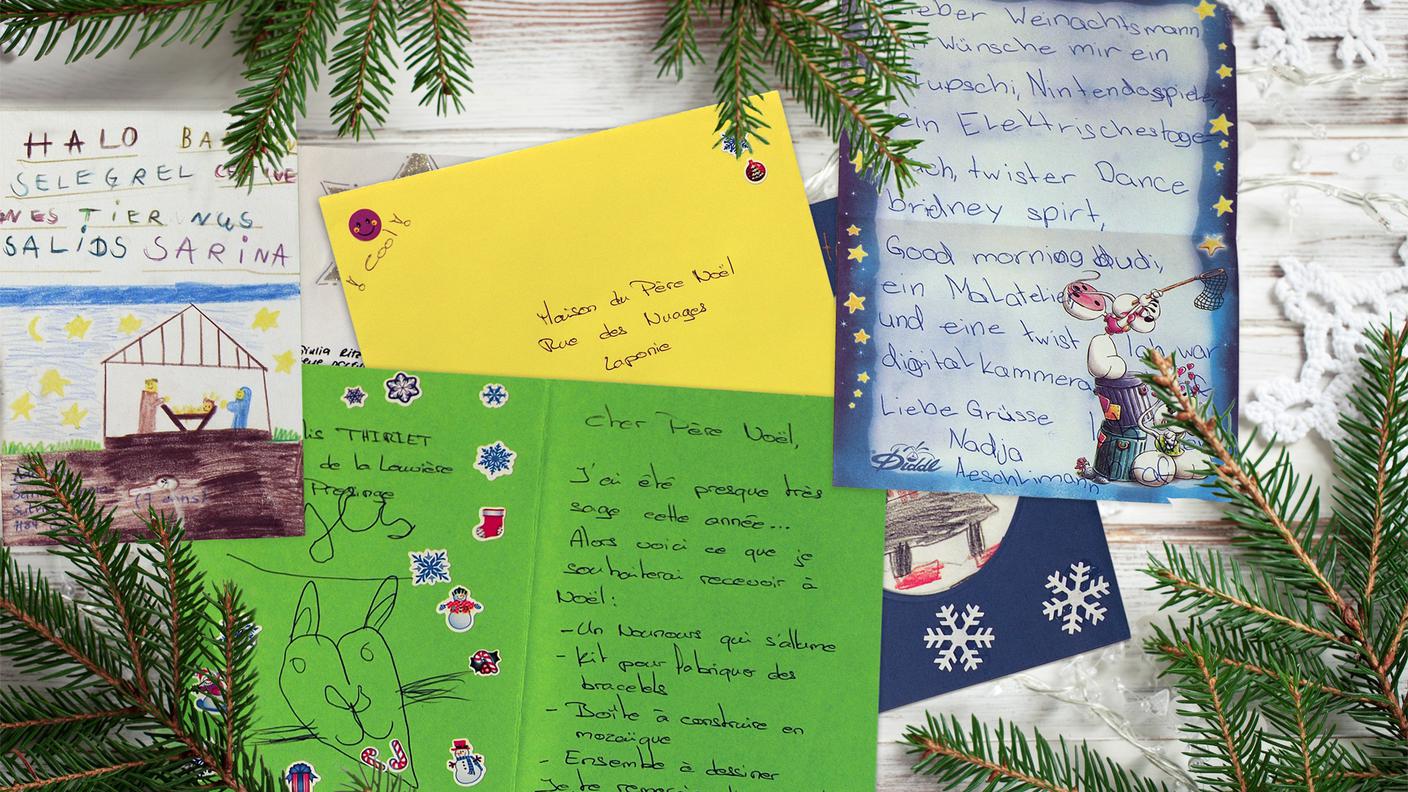 HALO BA
SELEGREL
TiER
SALiDS SARiNA
cool
Maison du Père Noël
Rue des Nuages
Laponie
Giulia
lis THIRIET
de la Louvière
Presinge
cher Père Noël,
J'ai été presque très
sage cette année...
Alors voici ce que je
souhaiterai recevoir à
Noël:
- Un Nounours qui s'allume
- Kit pour fabriquer des
bracelets
- Boîte à construire en
mozaïque
- Ensemble à dessiner
Je te
ieber Weinachtsmann
Wünsche mir ein
tupschi, Nintendospiele,
ein Elektrischestoge
ch, twister Dance
bridney spirt,
Good morning Dudi,
ein Malatelie
und eine twist Ich war
digital kammera
Liebe Grüsse
Nadja
Aeschlimann
Diddl